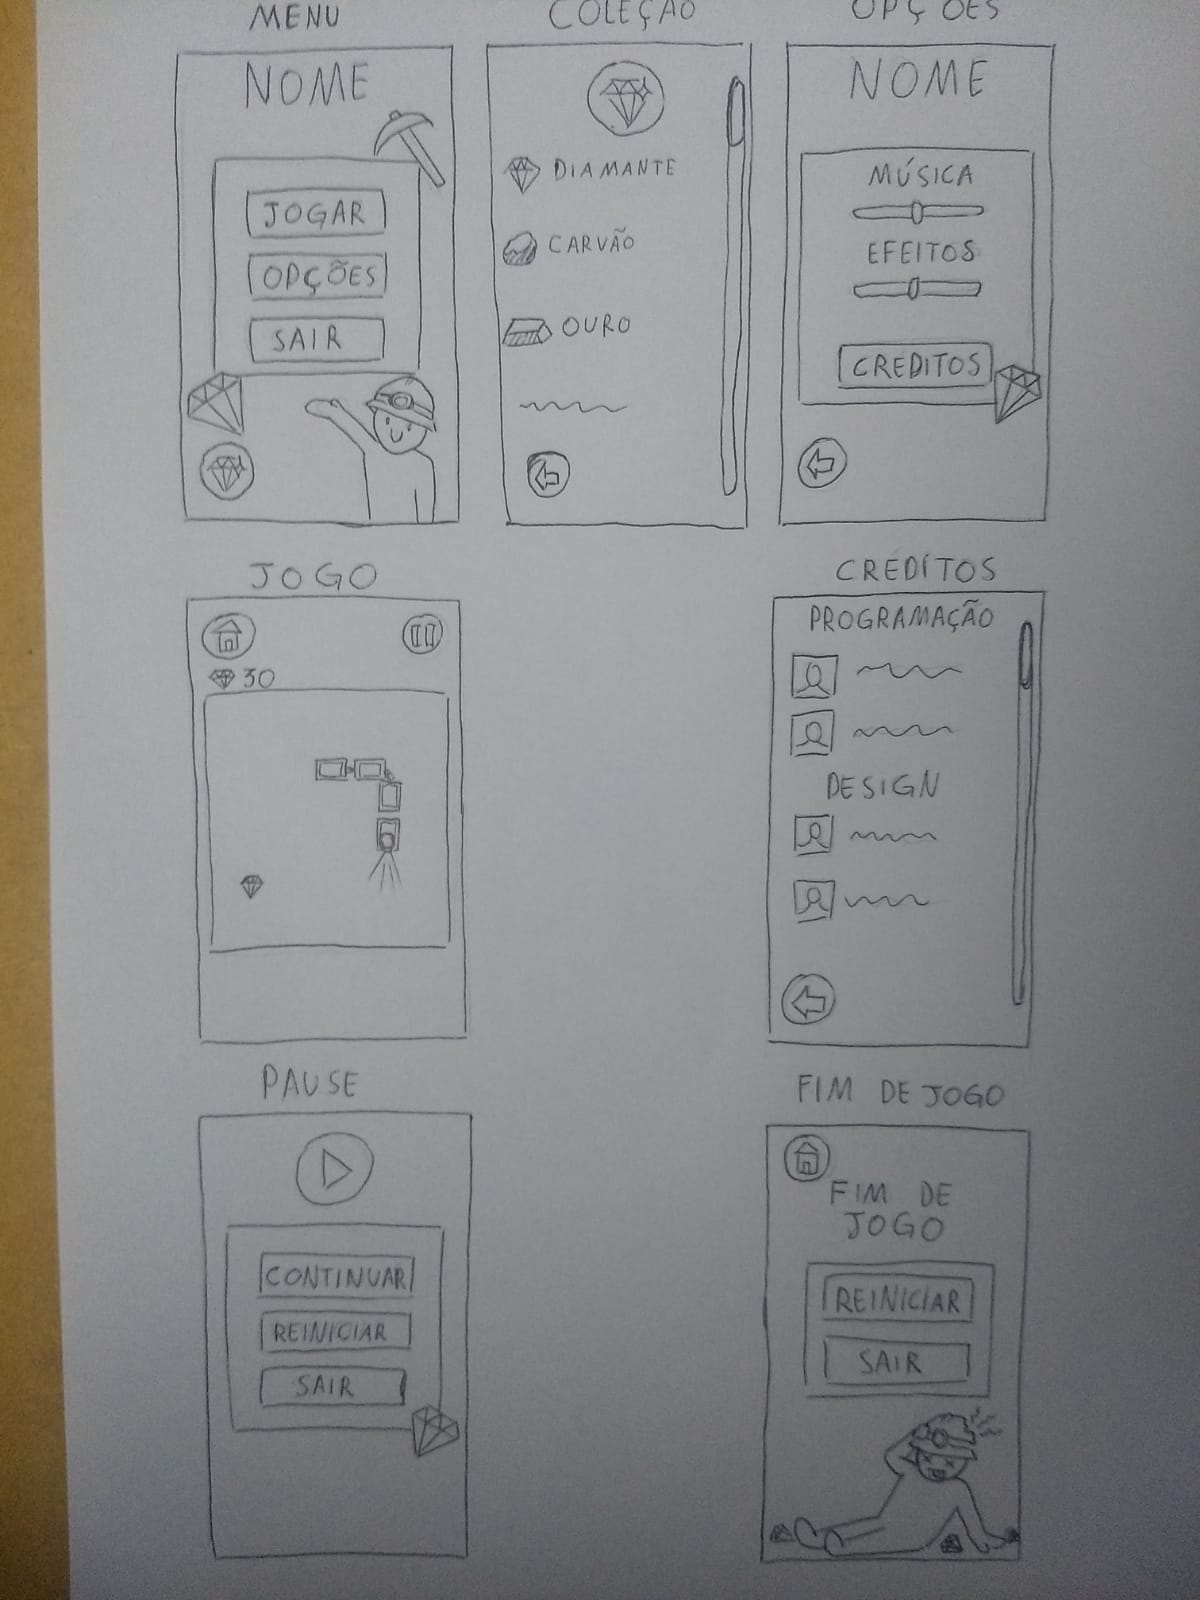 MENU
NOME
JOGAR
OPÇÕES
SAIR
COLEÇÃO
DIAMANTE
CARVÃO
OURO
OPÇÕES
NOME
MÚSICA
EFEITOS
CREDITOS
JOGO
30
CRÉDITOS
PROGRAMAÇÃO
DESIGN
PAUSE
CONTINUAR
REINICIAR
SAIR
FIM DE JOGO
FIM DE
JOGO
REINICIAR
SAIR